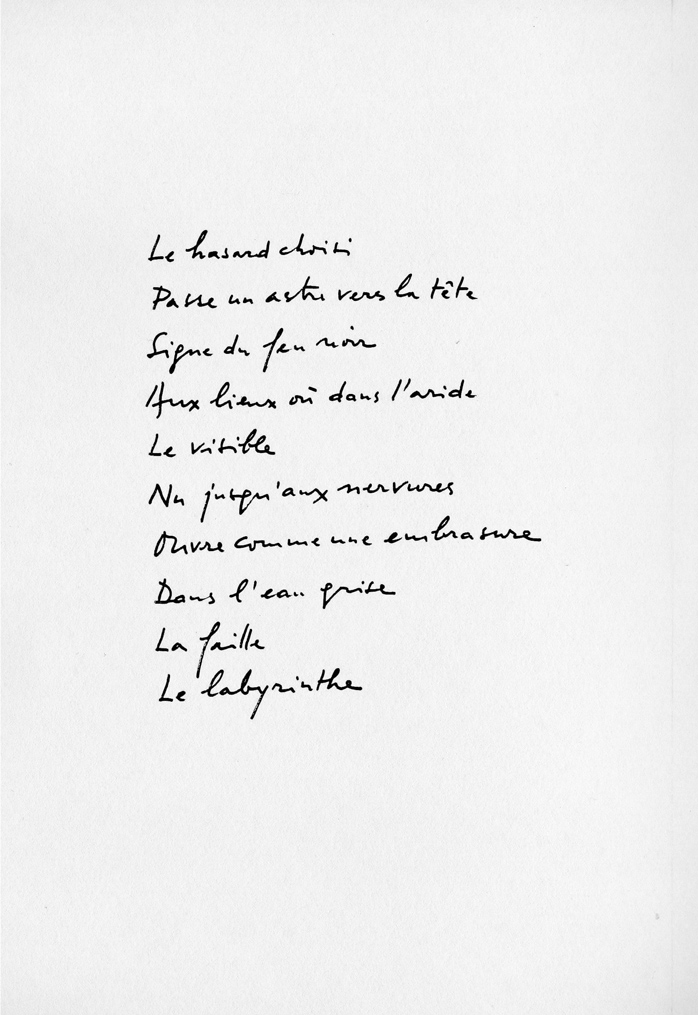 Le hasard choisi
Passe un astre vers la tête
Signe du feu noir
Aux lieux où dans l'aride
Le visible
Nu jusqu'aux nervures
Ouvre comme une embrasure
Dans l'eau grise
La faille
Le labyrinthe